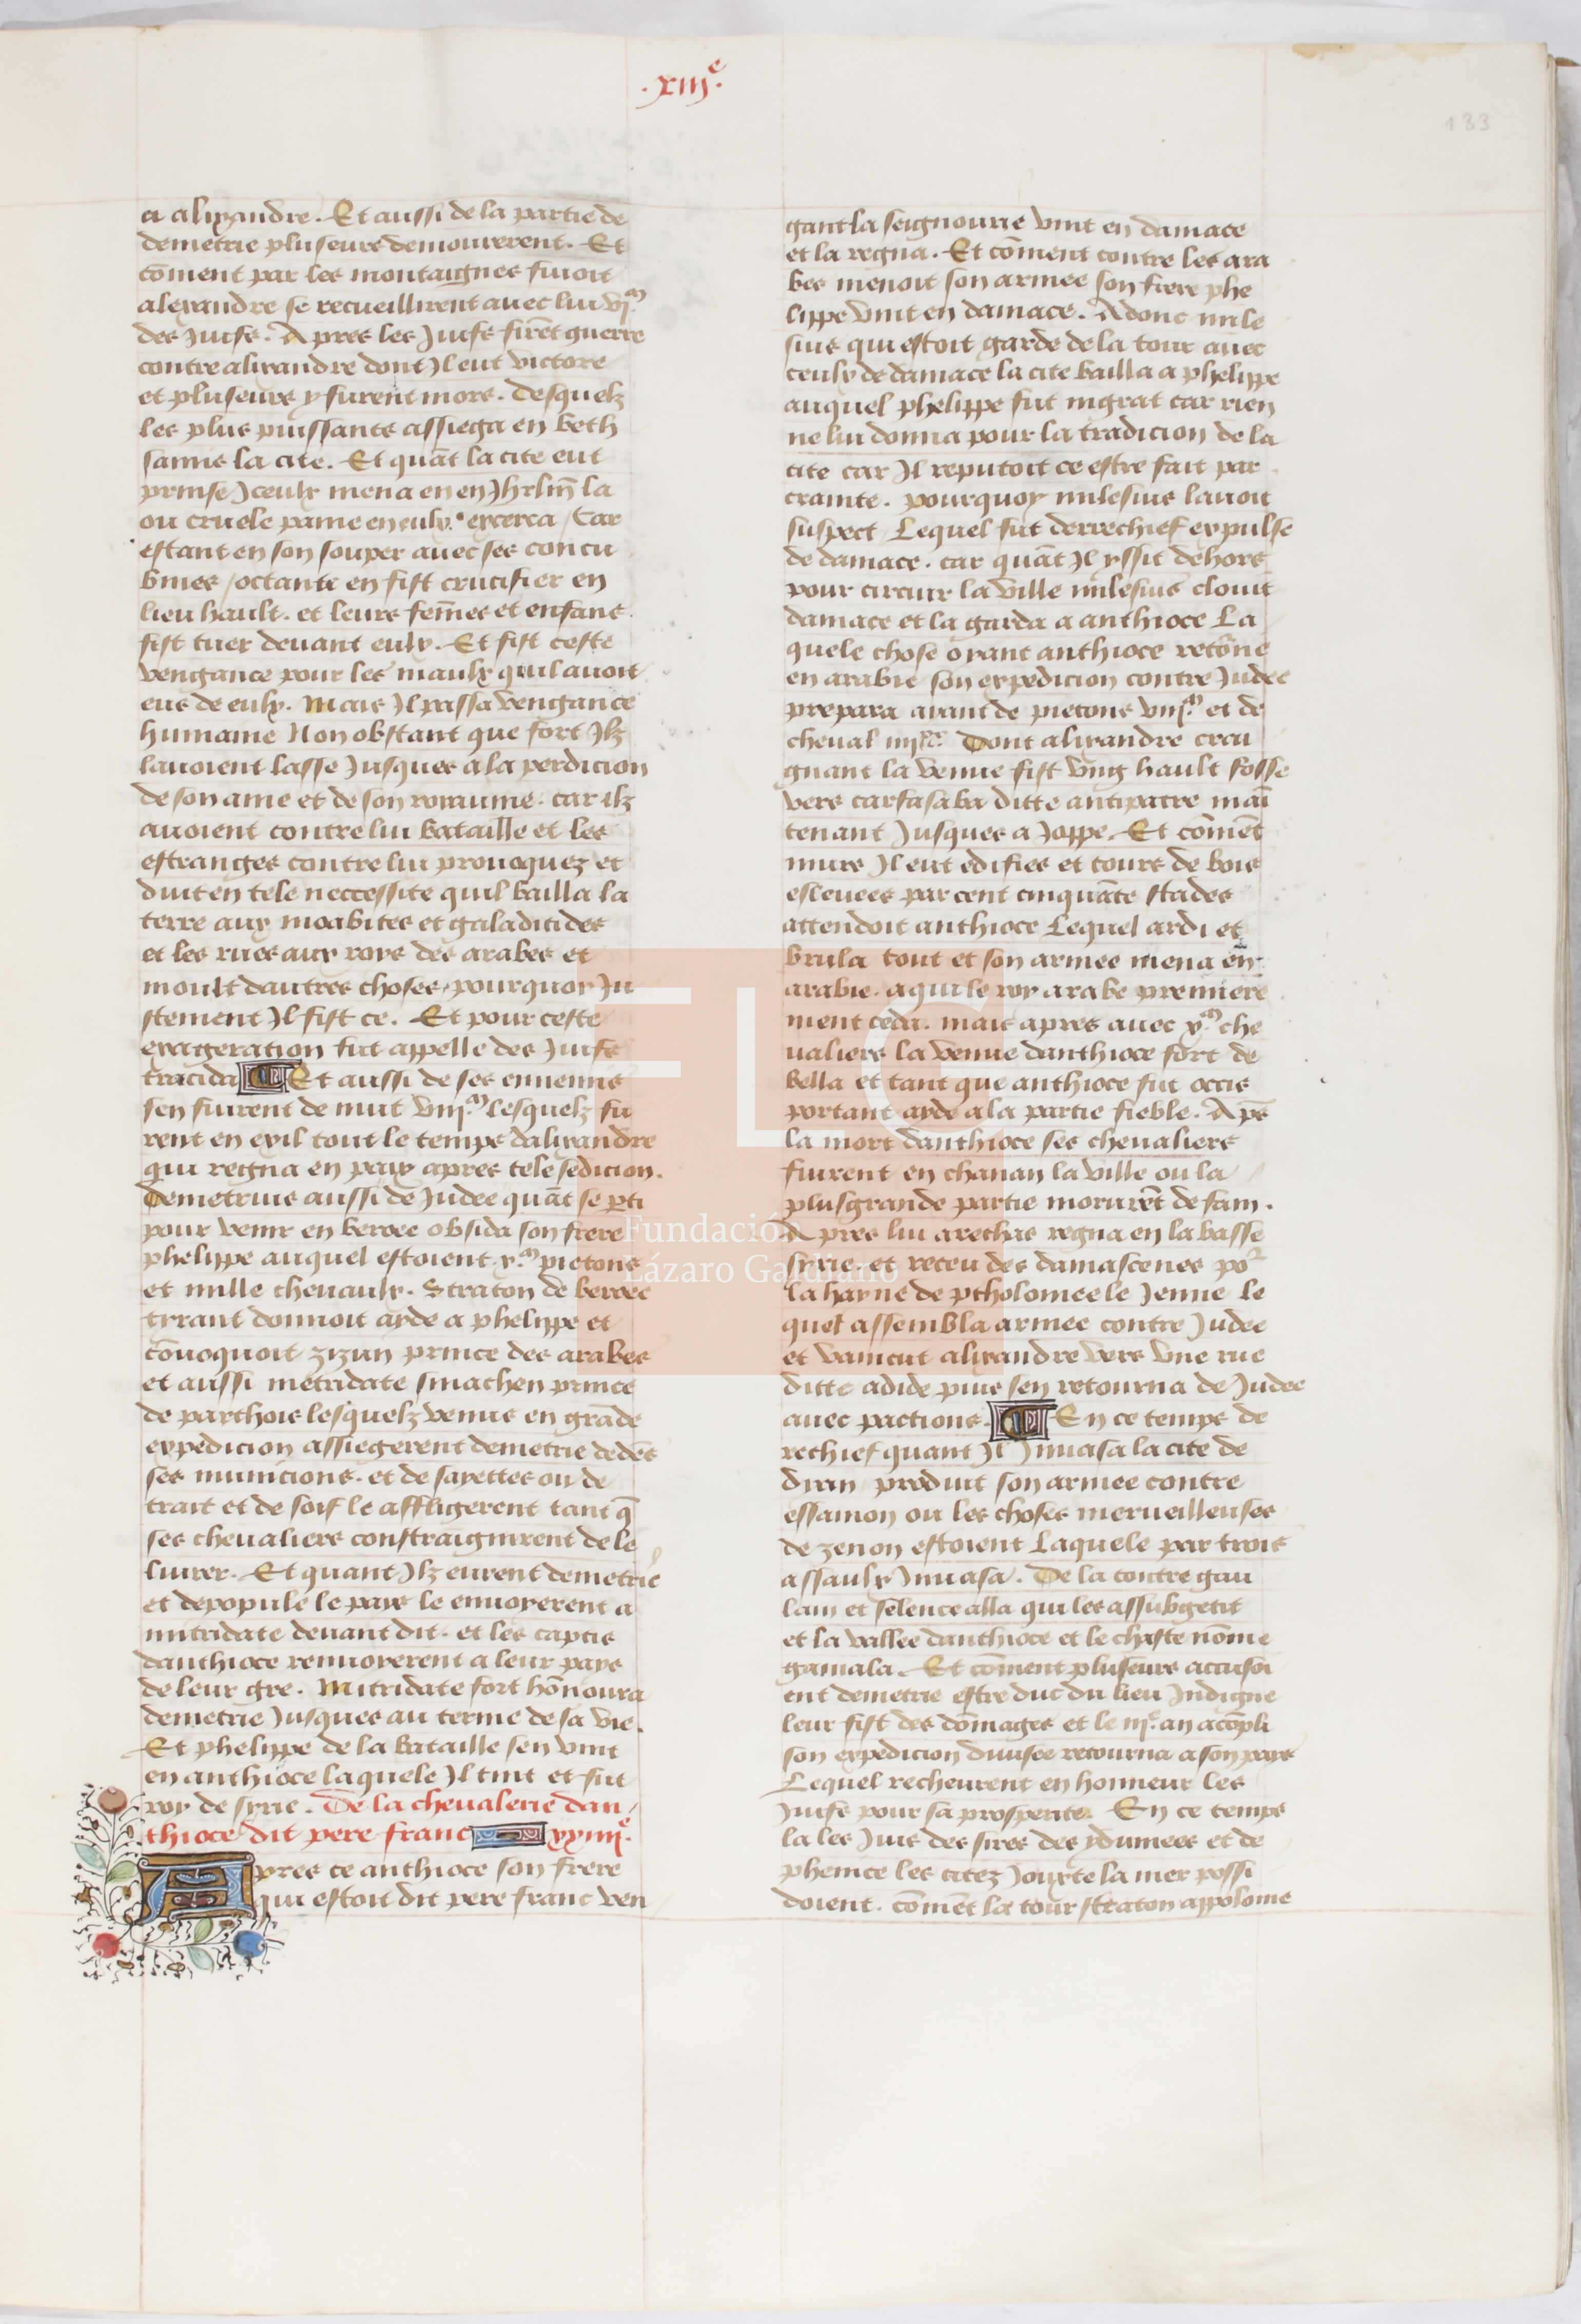 .xiij.e
133
a alixandre. Et aussi de la partie de
demetrie pluseurs demourerent. Et
cōment par les montaignes fuioit
alexandre se recueillirent auec lui vj.m
des Juifs. Apres les Juifs firēt guerre
contre alixandre dont Il eut victore
et pluseurs y furent mors. desquelz
les plus puissants assiega en beth
sanne la cite. Et quāt la cite eut
prinse Jceulx mena en en Jhrlm̄ la
ou cruele paine en eulx excerca / Car
estant en son souper auec ses concu
bines / octante en fist crucifier en
lieu hault. et leurs fem̄es et enfans
fist tuer deuant eulx. Et fist ceste
vengance pour les maulx quil auoit
eus de eulx. Mais Il passa vengance
humaine Non obstant que fort Ilz
lauoient lasse Jusques a la perdicion
de son ame et de son roiaume. car ilz
auoient contre lui bataille et les
estranges contre lui prouoquez et
duit en tele neccessite quil bailla la
terre aux moabites et galaditides
et les rues aux roys des arabes et
moult dautres choses, pourquoy Ju
stement Il fist ce. Et pour ceste
exageration fut appelle des Juifs
tracida Et aussi de ses ennemis
sen fuirent de nuit viij.m lesquelz fu
rent en exil tout le temps dalixandre
qui regna en paix apres tele sedicion.
Demetrius aussi de Judee quāt se p̄ti
pour venir en beroee obsida son frere
phelippe auquel estoient x.m pietons
et mille cheuaulx. Straton de beroee
tirant donnoit ayde a phelippe et
cōuoquoit zizun prince des arabes
et aussi metridate sinachen prince
de parthois lesquelz venus en grāde
expedicion assiegerent demetrie dedēs
ses municions. et de sayettes ou de
trait et de soif le affligerent tant q̄
ses cheualiers constraignirent de le
liurer. Et quant Ilz eurent demetrie
et depopule le pays le enuoyerent a
mitridate deuant dit. et les captis
danthioce renuoyerent a leur pays
de leur gre. Mitridate fort hōnoura
demetrie Jusques au terme de sa vie.
Et phelippe de la bataille sen vint
en anthioce laquele Il tint et fut
roy de syrie. De la cheualerie dan /
thioce dit pere franc xxiiij.e
Apres ce anthioce son frere
qui estoit dit pere franc ven
gant la seignourie vint en damace
et la regna. Et cōment contre les ara
bes menoit son armee son frere phe
lippe vint en damace. Adonc mile
sius qui estoit garde de la tour auec
ceulx de damace la cite bailla a phelippe
auquel phelippe fut ingrat car rien
ne lui donna pour la tradicion de la
cite car Il reputoit ce estre fait par
crainte. pourquoy milesius lauoit
suspect Lequel fut derrechief expulse
de damace. car quāt Il yssit dehors
pour circuir la ville milesius clouit
damace et la garda a anthioce La
quele chose oyant anthioce retōrne
en arabie son expedicion contre Judee
prepara aiant de pietons viij.m et de
cheual iiij.c Dont alixandre crai
gnant la venue fist vng hault fosse
vers carfasaba ditte antipatre mai
tenant Jusques a Joppe. Et cōment
murs Il eut edifies et tours de bois
esleuees par cent cinquāte stades
attendoit anthioce Lequel ardi et
brula tout et son armee mena en
arabie. a qui le roy arabe premiere
ment ceda. mais apres auec x.m che
ualiers la venue danthioce fort de
bella et tant que anthioce fut occis
portant ayde a la partie fieble. Ap̄s
la mort danthioce ses cheualiers
fuirent en chanan la ville ou la
plusgrande partie morurēt de fam.
Apres lui arechas regna en la basse
syrie. et receu des damascenes po.r
la hayne de ptholomee le Jenne le
quel assembla armee contre Judee
et vaincut alixandre vers vne rue
ditte adide puis sen retourna de Judee
auec pactions. En ce temps de
rechief quant Il Jnuasa la cite de
dian produit son armee contre
essamon ou les choses merueilleuses
de zenon estoient Laquele par trois
assaulx Jnuasa. De la contre gau
lam et selence alla qui les assubgetit
et la vallee danthioce et le chaste nōme
gamala. Et cōment pluseurs accusoi
ent demetrie estre duc du lieu Jndigne
leur fist des dōmages et le iij.e an acōpli
son expedicion diuisee retourna a son pays
Lequel recheurent en honneur les
Juifs pour sa prosperite. En ce temps
la les Juis des sires des ydumees et de
phenice les citez Jouxte la mer possi
doient. cōmēt la tour straton appolonie
Fundación
Lázaro Galdiano